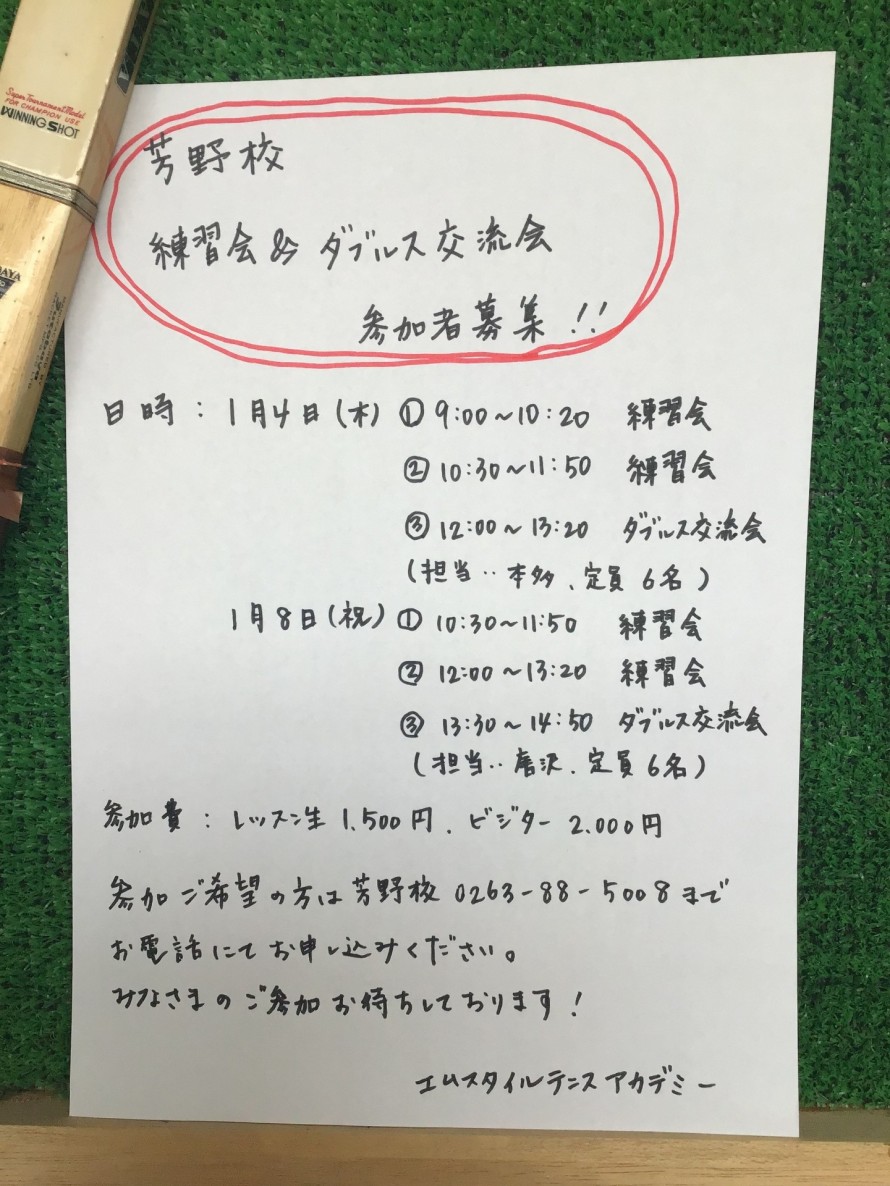 Super Tournament Model
FOR CHAMPION USE
WINNING SHOT
芳野校
練習会 & ダブルス交流会
参加者募集!!
日時:1月4日(木) ① 9:00~10:20 練習会
② 10:30~11:50 練習会
③ 12:00~13:20 ダブルス交流会
(担当‥本多、定員6名)
1月8日(祝) ① 10:30~11:50 練習会
② 12:00~13:20 練習会
③ 13:30~14:50 ダブルス交流会
(担当‥唐沢、定員6名)
参加費:レッスン生 1.500円、ビジター 2.000円
参加ご希望の方は芳野校 0263-88-5008まで
お電話にてお申し込みください。
みなさまのご参加お待ちしております!
エムスタイルテニスアカデミー